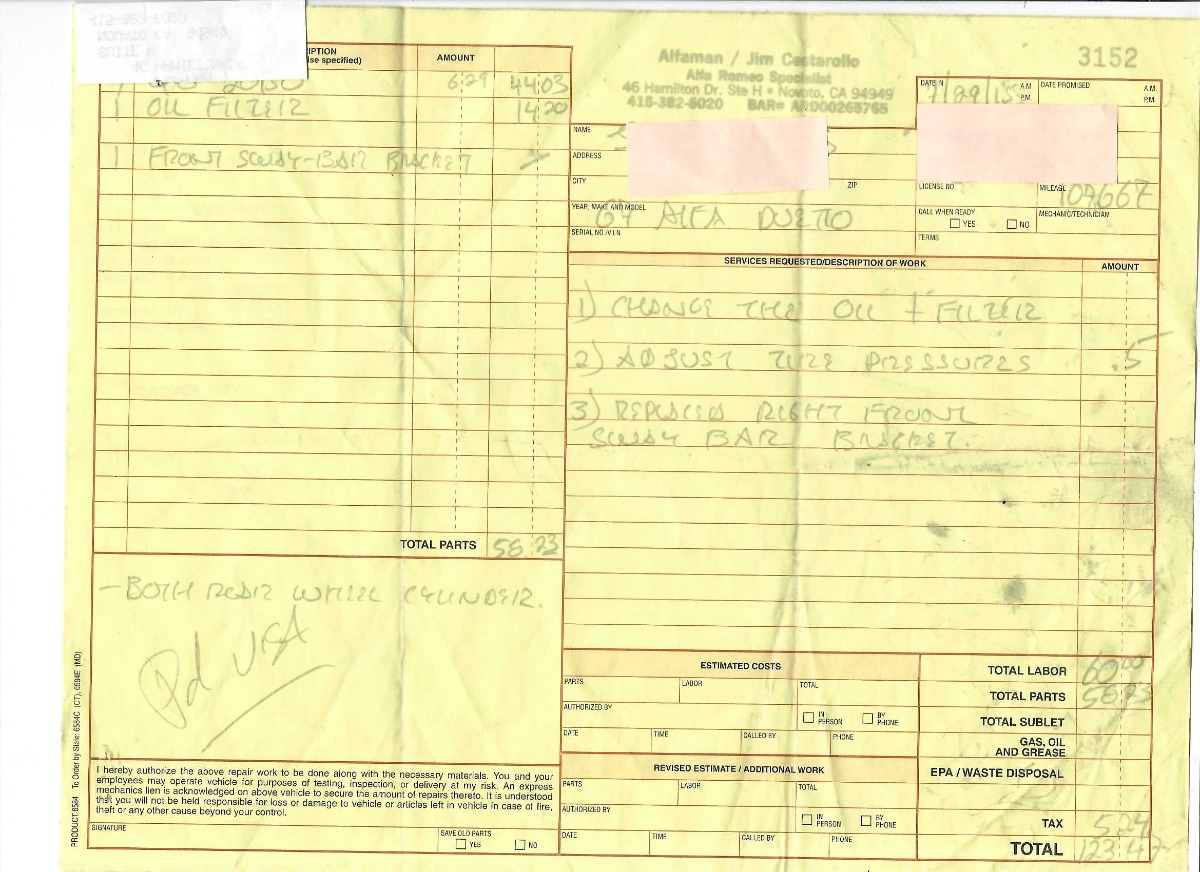 415-382-6020
NOVATO CA 94949
SUITE H
46 HAMILTON DR
3152
Alfaman / Jim Castarollo
Alfa Romeo Specialist
46 Hamilton Dr. Ste H • Novato, CA 94949
415-382-6020 BAR# ARD00265765
AMOUNT
se specified)
20W50 6.29 44.03
1 OIL FILTER 14.20
1 FRONT SWAY-BAR BRACKET
TOTAL PARTS 58.23
- BOTH REAR WHEEL CYLINDER.
Pd VISA
I hereby authorize the above repair work to be done along with the necessary materials. You and your
employees may operate vehicle for purposes of testing, inspection, or delivery at my risk. An express
mechanics lien is acknowledged on above vehicle to secure the amount of repairs thereto. It is understood
that you will not be held responsible for loss or damage to vehicle or articles left in vehicle in case of fire,
theft or any other cause beyond your control.
SIGNATURE
SAVE OLD PARTS
YES NO
PRODUCT 6584 To Order by State: 6584C (CT), 6584E (MD)
DATE IN 7/29/15 A.M. P.M. DATE PROMISED A.M. P.M.
NAME
ADDRESS
CITY ZIP
LICENSE NO. MILEAGE 109667
YEAR, MAKE AND MODEL 67 ALFA DUETTO
CALL WHEN READY YES NO
MECHANIC/TECHNICIAN
SERIAL NO./V.I.N.
TERMS
SERVICES REQUESTED/DESCRIPTION OF WORK AMOUNT
1) CHANGE THE OIL + FILTER
2) ADJUST TIRE PRESSURES .5
3) REPLACED RIGHT FRONT
SWAY BAR BRACKET.
ESTIMATED COSTS
PARTS LABOR TOTAL
AUTHORIZED BY IN PERSON BY PHONE
DATE TIME CALLED BY PHONE
REVISED ESTIMATE / ADDITIONAL WORK
PARTS LABOR TOTAL
AUTHORIZED BY IN PERSON BY PHONE
DATE TIME CALLED BY PHONE
TOTAL LABOR 60.00
TOTAL PARTS 58.23
TOTAL SUBLET
GAS, OIL
AND GREASE
EPA / WASTE DISPOSAL
TAX 5.24
TOTAL 123.47